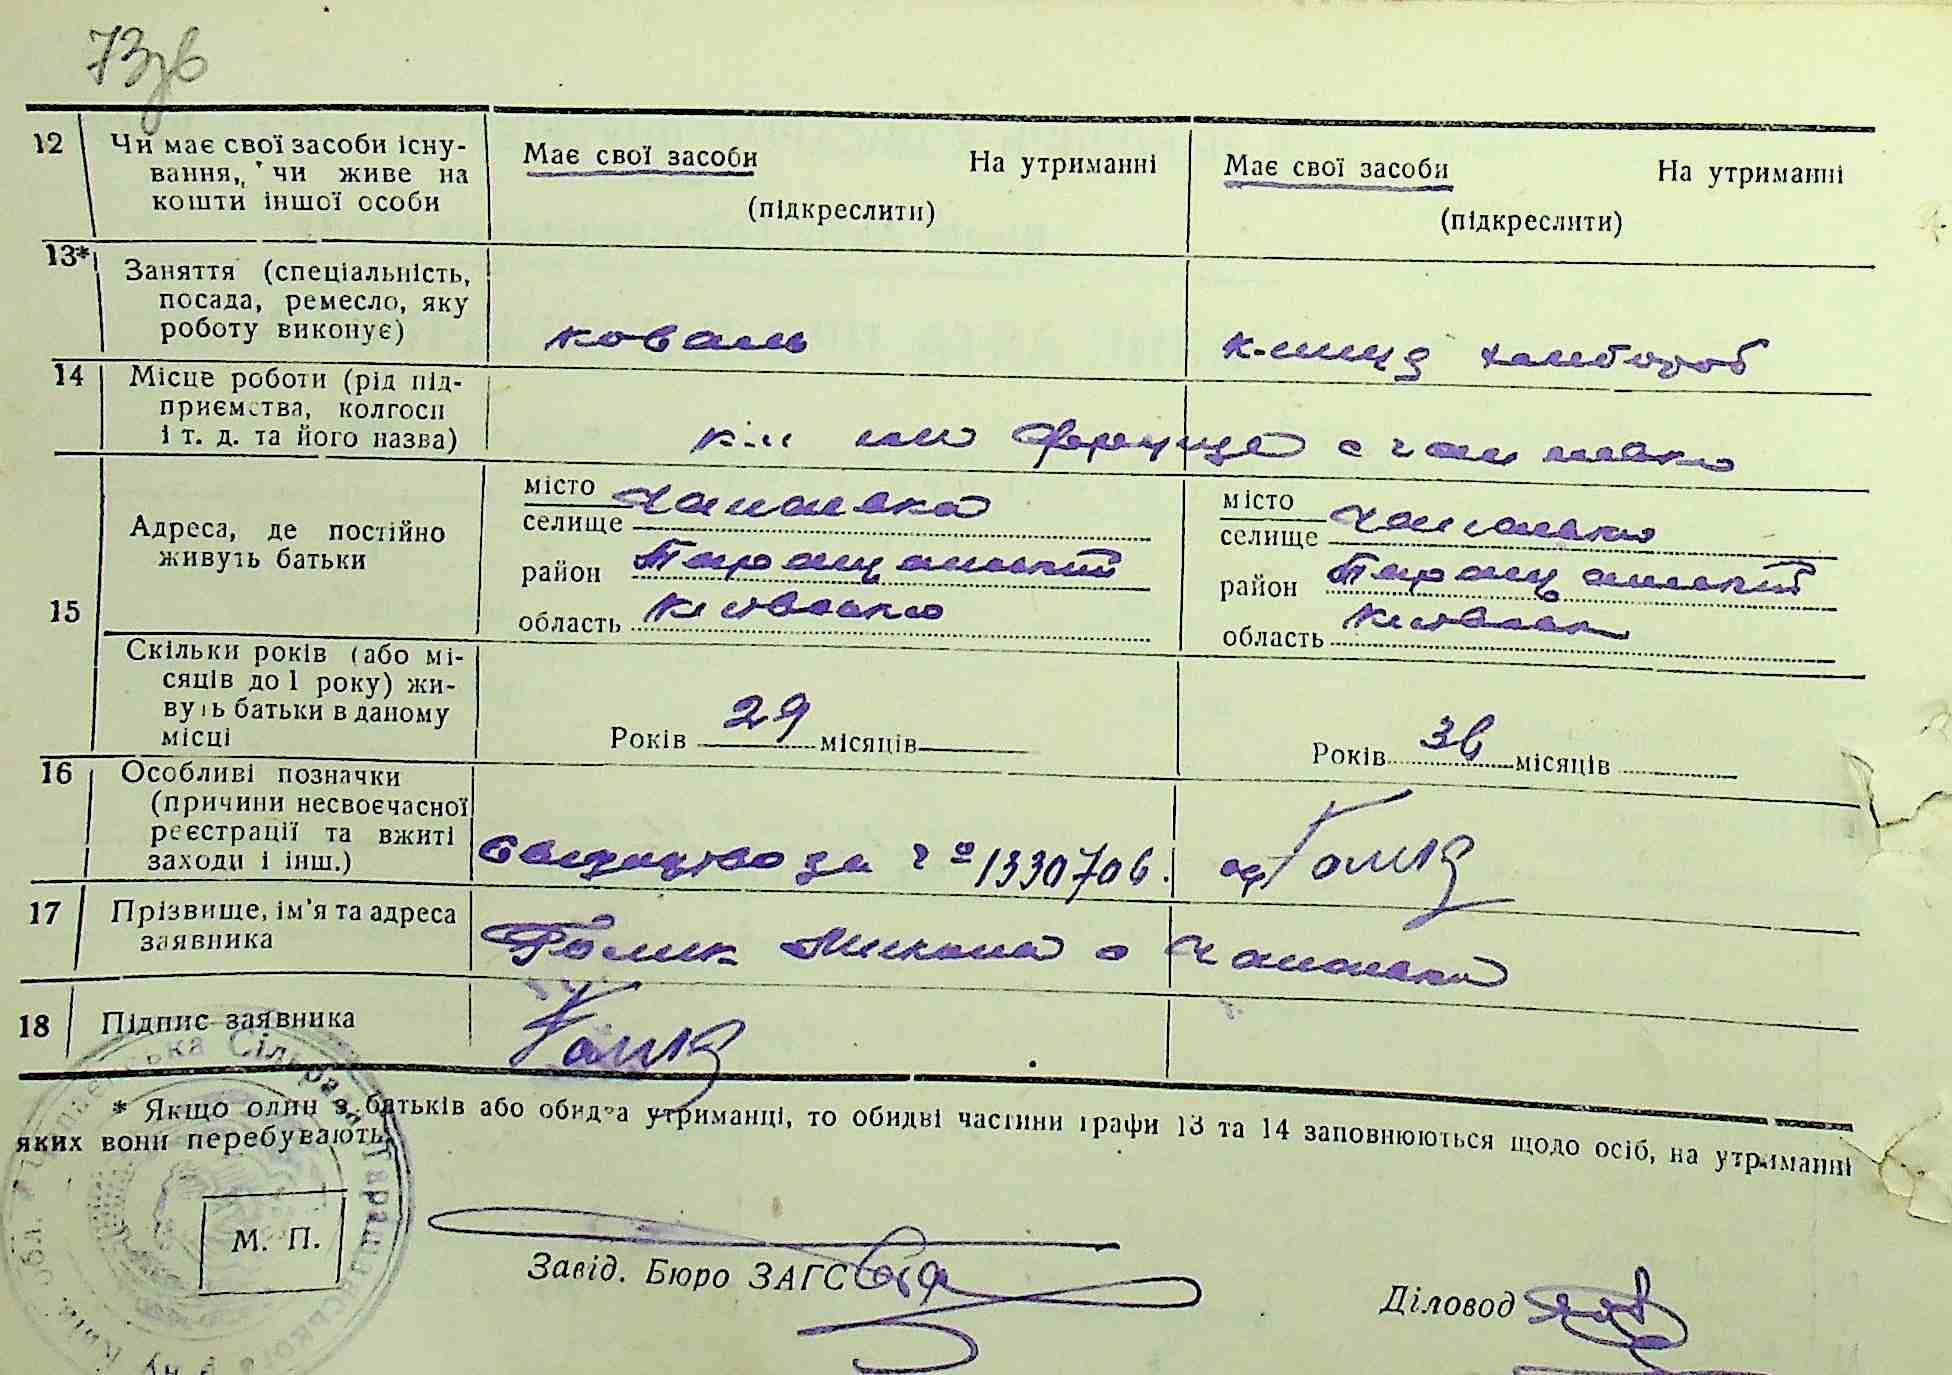 73зв
12 Чи має свої засоби існу-
вання, чи живе на
кошти іншої особи
Має свої засоби На утриманні
(підкреслити)
Має свої засоби На утриманні
(підкреслити)
13* Заняття (спеціальність,
посада, ремесло, яку
роботу виконує)
коваль
14 Місце роботи (рід під-
приємства, колгосп
і т. д. та його назва)
15 Адреса, де постійно
живуть батьки
місто
селище
район Таращанський
область Київська
місто
селище
район Таращанський
область
Скільки років (або мі-
сяців до 1 року) жи-
вуть батьки в даному
місці
Років 29 місяців
Років 36 місяців
16 Особливі позначки
(причини несвоєчасної
реєстрації та вжиті
заходи і інш.)
Свидицтво за ч° 1330706.
17 Прізвище, ім'я та адреса
заявника
Голик Микола с
18 Підпис заявника
Голик
* Якщо один з батьків або обидва утриманці, то обидві частини графи 13 та 14 заповнюються щодо осіб, на утриманні
яких вони перебувають.
М. П.
Завід. Бюро ЗАГС
Діловод